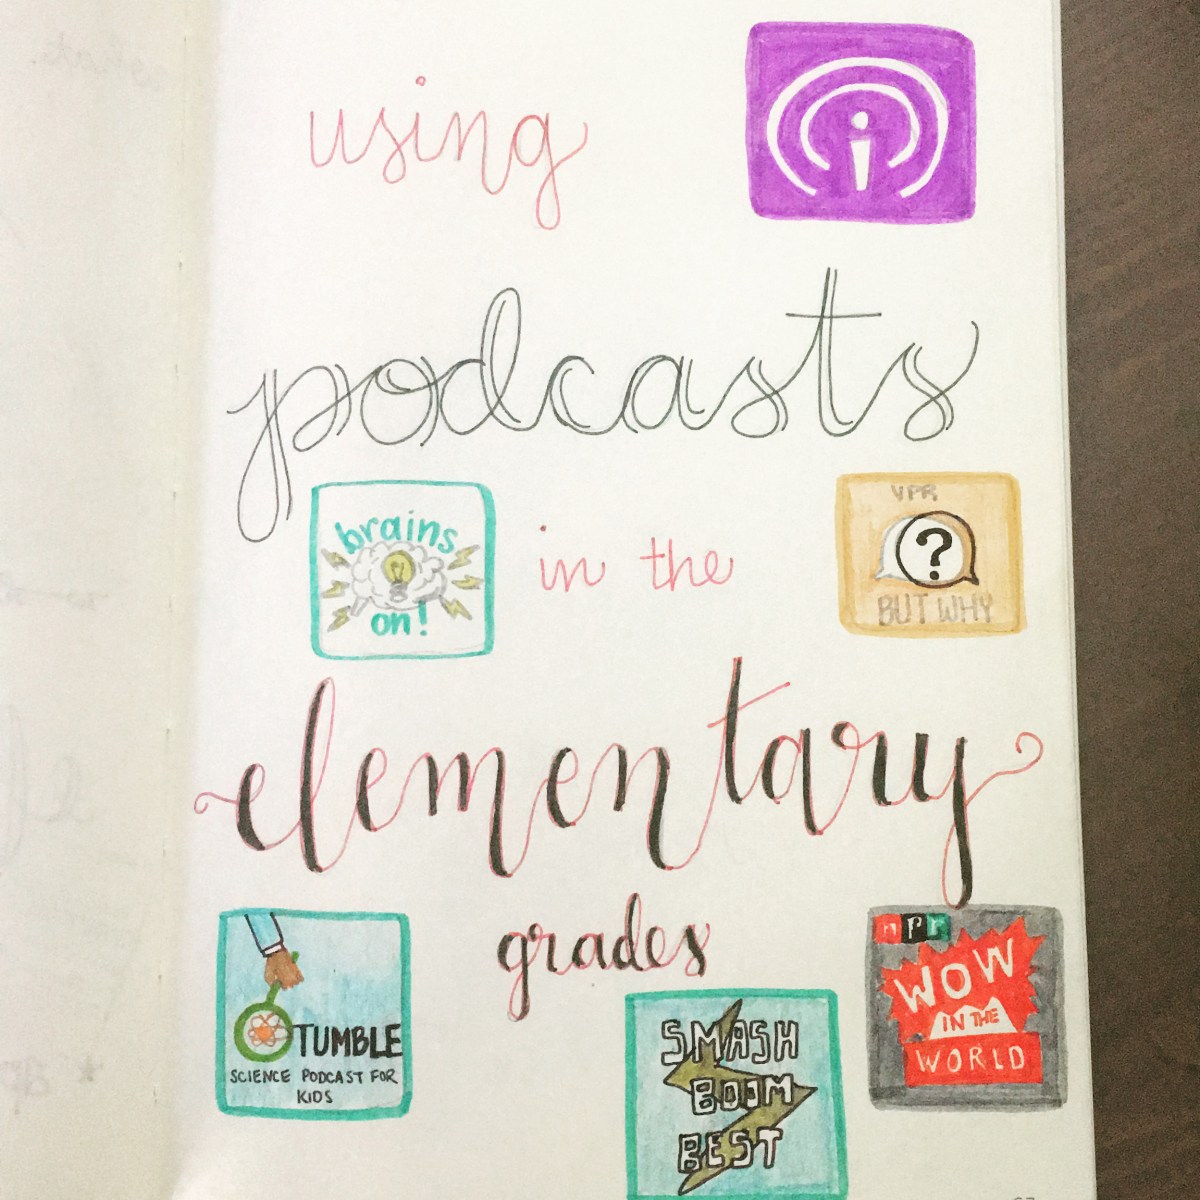 using
podcasts
brains
on!
in the
VPR
?
BUT WHY
elementary
grades
TUMBLE
SCIENCE PODCAST FOR
KIDS
SMASH
BOOM
BEST
npr
WOW
IN THE
WORLD